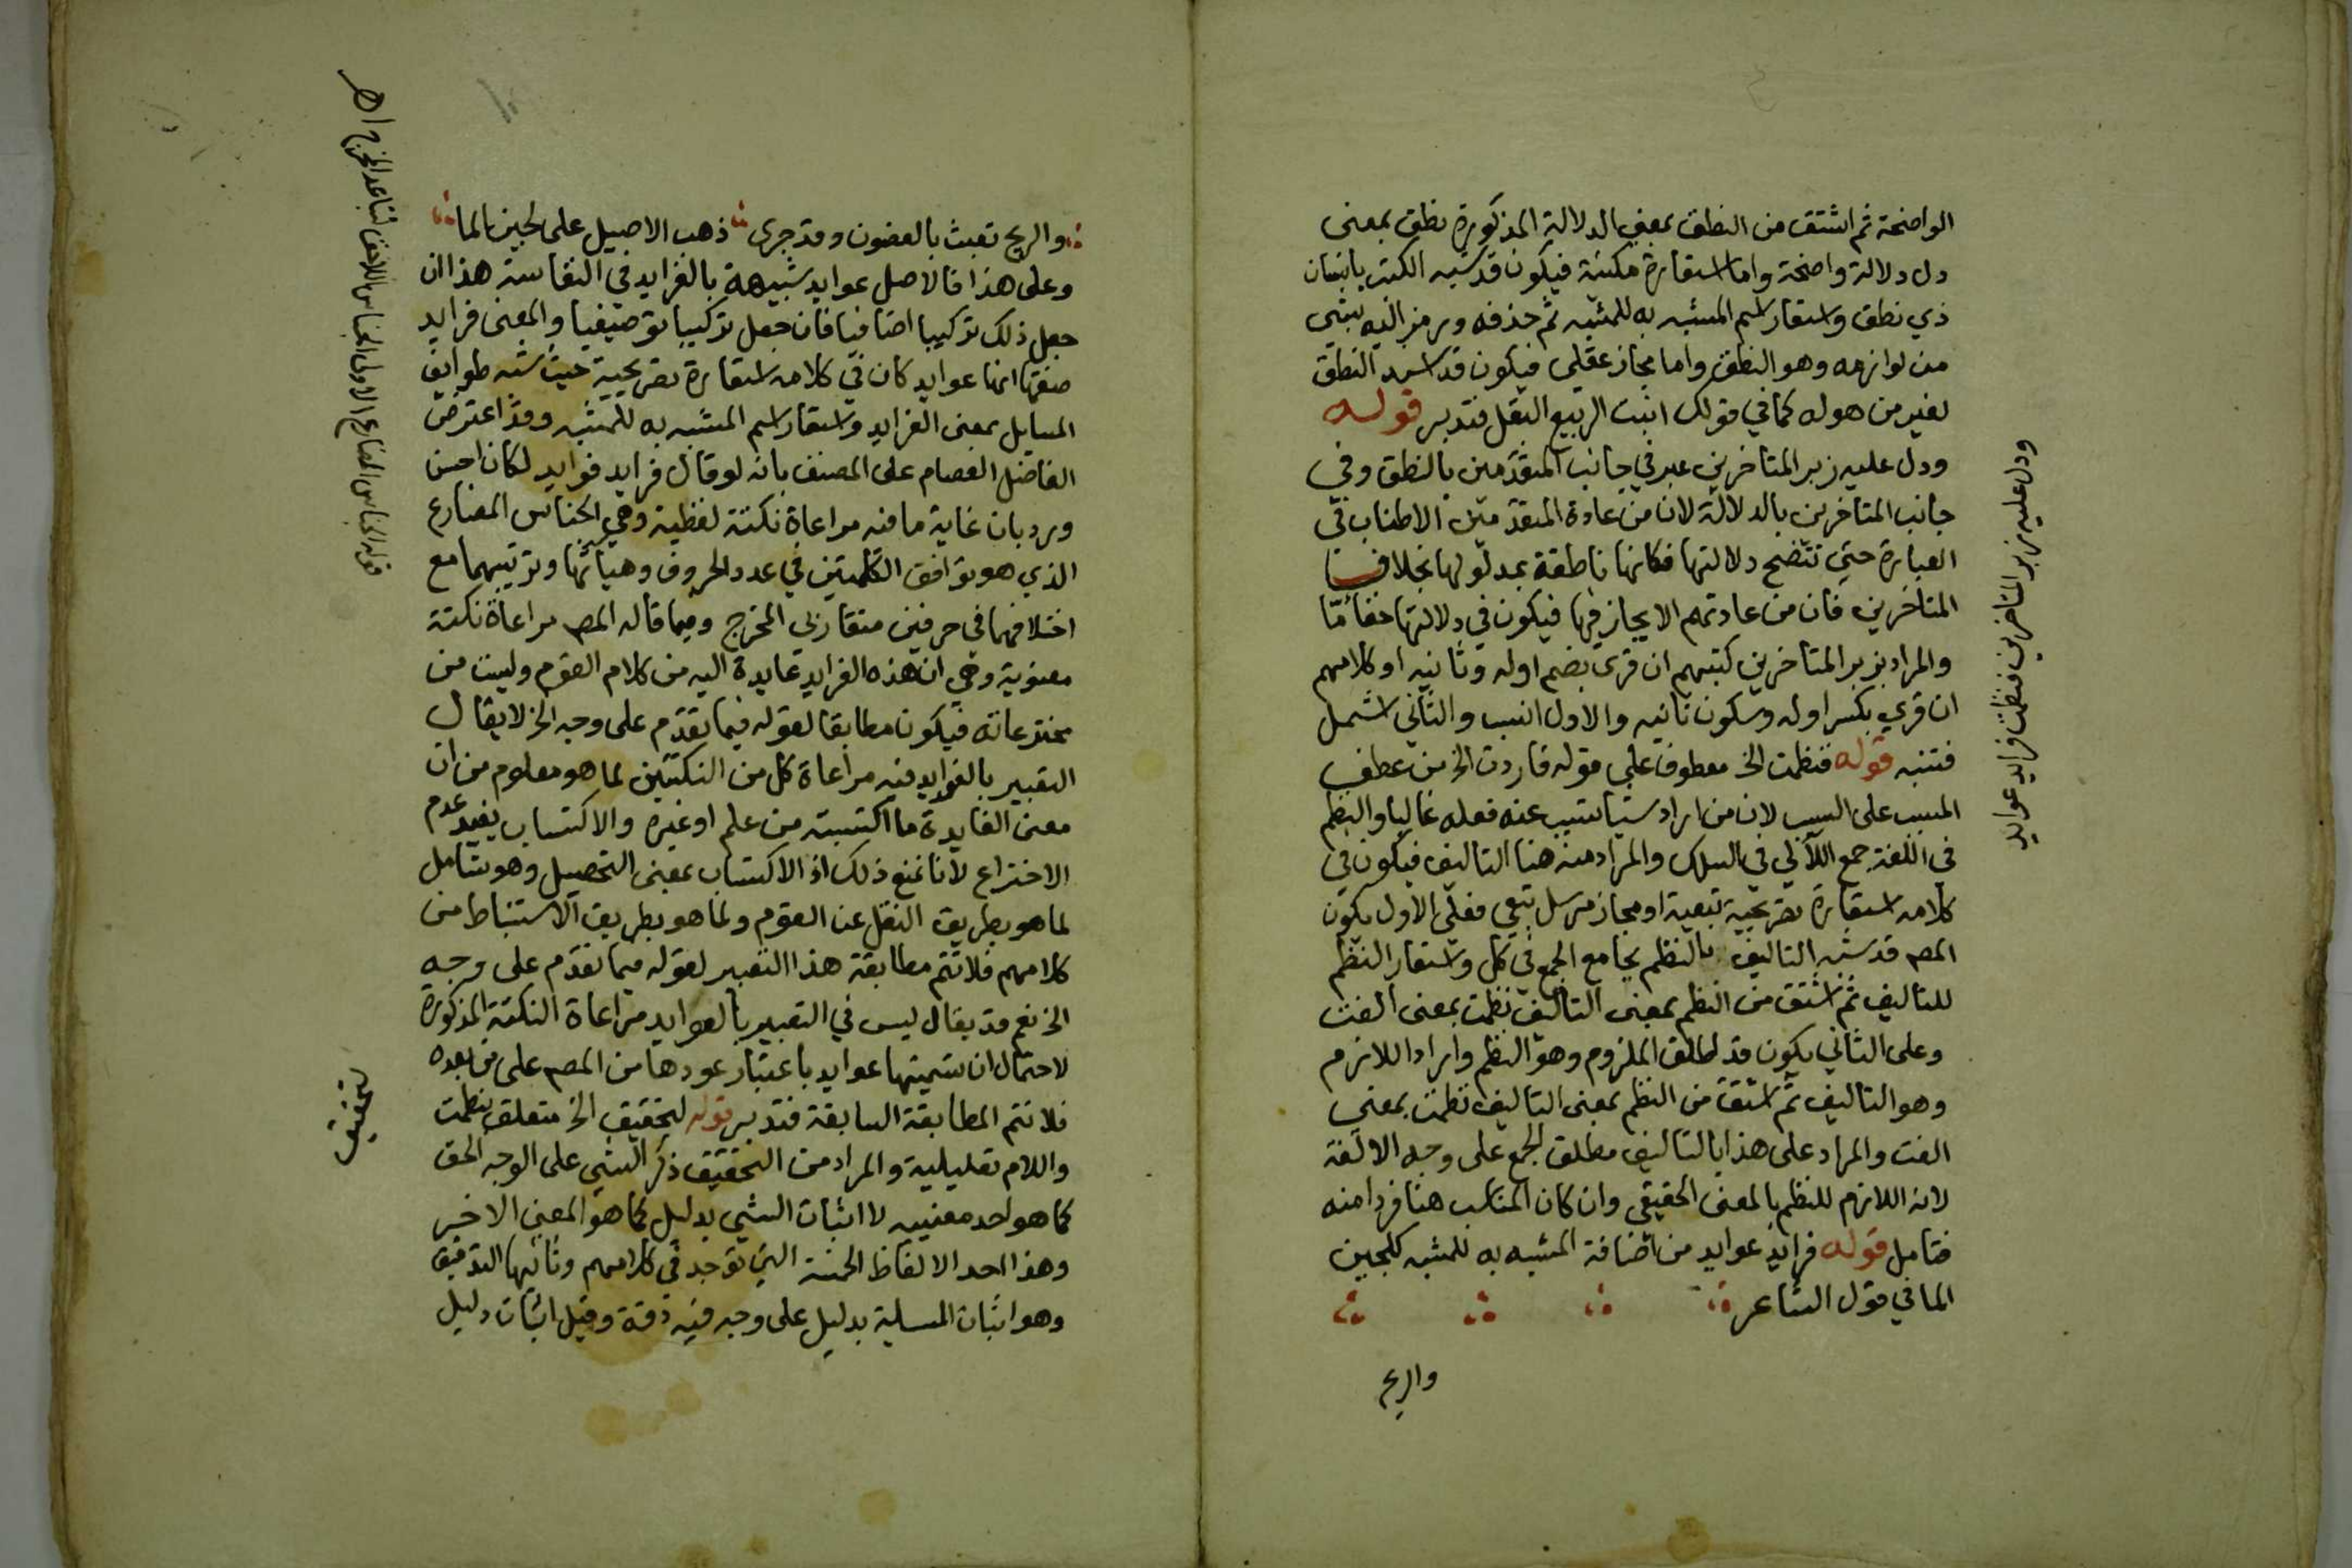 الواضحة ثم اشتق من النطق بمعنى الدلالة المذكورة نطق بمعنى
دل دلالة واضحة واما استعارة مكنية فيكون قد شبه الكتب بانسان
ذي نطق واستعار اسم المشبه به للمشبه ثم حذفه ورمز اليه بشي
من لوازمه وهو النطق واما مجاز عقلي فيكون قد اسند النطق
لغير من هوله كما في قولك انبت الربيع البقل فتدبر قوله
ودل عليه زبر المتاخرين عبر في جانب المتقدمين بالنطق وفي
جانب المتاخرين بالدلالة لان من عادة المتقدمين الاطناب في
العبارة حتي تتضح دلالتها فكانها ناطقة بمدلولها بخلاف
المتاخرين فان من عادتهم الايجاز فيها فيكون في دلالتها خفا ما
والمراد بزبر المتاخرين كتبهم ان قري بضم اوله وثانيه او كلامهم
ان قري بكسر اوله وسكون ثانيه والاول انسب والثاني اشمل
فتنبه قوله فنظمت الخ معطوف علي قوله فاردت الخ من عطف
المسبب على السبب لان من اراد شيا تسبب عنه فعله غالبا والنظم
في اللغة جمع اللآلي في السلك والمراد منه هنا التاليف فيكون في
كلامه استعارة تصريحية تبعية او مجاز مرسل تبعي فعلي الاول يكون
المصـ قد شبه التاليف بالنظم بجامع الجمع في كل واستعار النظم
للتاليف ثم اشتق من النظم بمعنى التاليف نظمت بمعنى الفت
وعلى الثاني يكون قد اطلق الملزوم وهو النظم واراد اللازم
وهو التاليف ثم اشتق من النظم بمعنى التاليف نظمت بمعنى
الفت والمراد على هذا بالتاليف مطلق الجمع على وجه الالفة
لانه اللازم للنظم بالمعنى الحقيقي وان كان المناسب هنا فردا منه
فتامل قوله فرايد عوايد من اضافة المشبه به للمشبه كلجين
الما في قول الشاعر
والريح
ودل عليه زبر المتاخرين فنظمت فرايد عوايد
والريح تعبث بالغصون وقد جرى ذهب الاصيل على لجين الما
وعلى هذا فالاصل عوايد شبيهة بالفرايد في النفاسة هذا ان
جعل ذلك تركيبا اضافيا فان جعل تركيبا توصيفيا والمعنى فرايد
صفتها انها عوايد كان في كلامه استعارة تصريحية حيث شبه طوايف
المسايل بمعنى الفرايد واستعار اسم المشبه به للمشبه وقد اعترض
الفاضل العصام على المصنف بانه لو قال فرايد فوايد لكان احسن
ورد بان غاية ما فيه مراعاة نكتة لفظية وهي الجناس المضارع
الذي هو توافق الكلمتين في عدد الحروف وهيآتها وترتيبهما مع
اختلافهما في حرفين متقاربي المخرج وفيما قاله المصـ مراعاة نكتة
معنوية وهي ان هذه الفرايد عايدة اليه من كلام القوم وليست من
مخترعاته فيكون مطابقا لقوله فيما تقدم على وجه الخ لا يقال
التعبير بالفوايد فيه مراعاة كل من النكتتين لما هو معلوم من ان
معنى الفايدة ما اكتسبته من علم او غيره والاكتساب يفيد عدم
الاختراع لانا نمنع ذلك اذ الاكتساب بمعنى التحصيل وهو شامل
لما هو بطريق النقل عن القوم ولما هو بطريق الاستنباط من
كلامهم فلا تتم مطابقة هذا التعبير لقوله فيما تقدم على وجه
الخ نعم قد يقال ليس في التعبير بالعوايد مراعاة النكتة المذكورة
لاحتمال ان تسميتها عوايد باعتبار عودها من المصـ على من بعده
فلا تتم المطابقة السابقة فتدبر قوله لتحقيق الخ متعلق بنظمت
واللام تعليلية والمراد من التحقيق ذكر الشي على الوجه الحق
كما هو احد معنييه لا اثبات الشي بدليل كما هو المعنى الاخر
وهذا احد الالفاظ الخمسة التي توجد في كلامهم وثانيها التدقيق
وهو اثبات المسلية بدليل على وجه فيه دقة وقيل اثبات دليل
قوله الجناس المضارع الاولى الجناس اللاحق لتباعد المخرج اهـ
لتحقيق